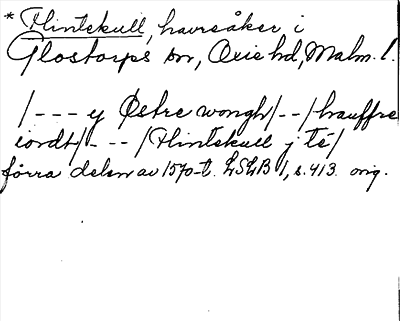 * Flintekull, havreåker i
Glostorps sn, Oxie hd, Malm. l.
/--- y Østre wongh/--/hauffre
iordt/- --/Flintekull j té/
förra delen av 1570-t. LSLB 1, s. 413. orig.